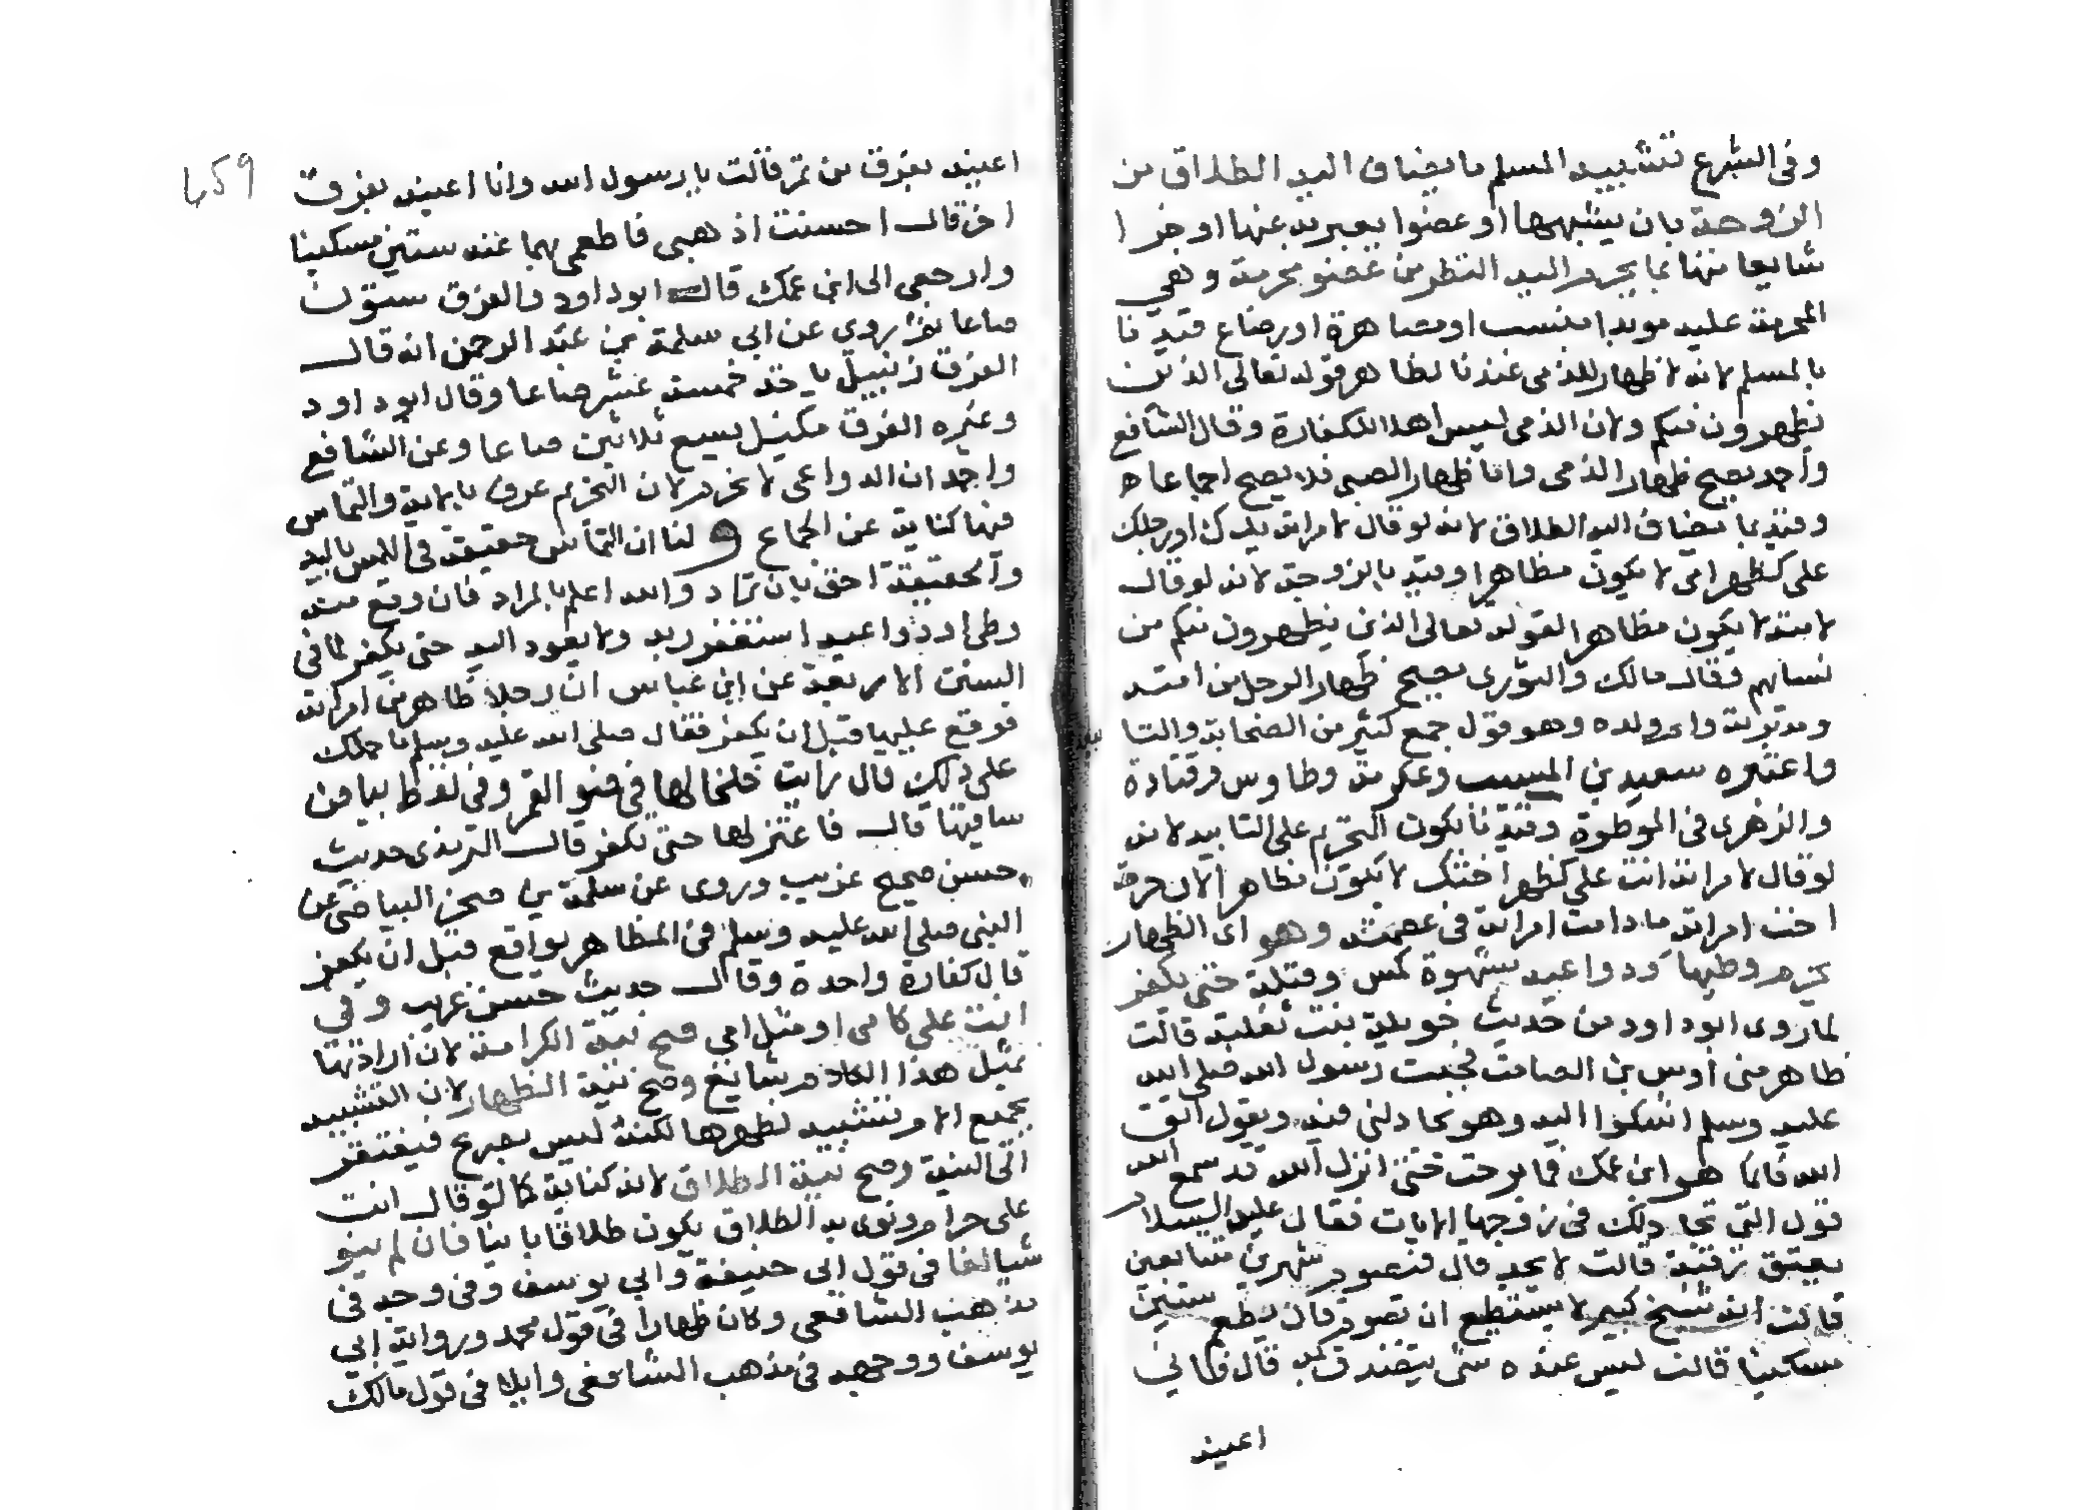 وفى الشرع تشبيه المسلم ما يضاف اليه الطلاق من
الزوجة بان يشبهها او عضوا يعبر به عنها او جزا
شايعا منها بما يحرم اليه النظر من عضو محرمة وهي
المحرمة عليه موبدا بنسب او مصاهرة او رضاع قيدنا
بالمسلم لانه لا ظهار للذمى عندنا لظاهر قوله تعالى الذين
يظهرون منكم ولان الذمى ليس اهلا للكفارة وقال الشافع
واحمد يصح ظهار الذمى واما ظهار الصبى فلا يصح اجماعا
وقيد بما يضاف اليه الطلاق لانه لو قال لامراته يدك او رجلك
على كظهر امى لا يكون مظاهرا وقيد بالزوجة لانه لو قال
لامته لا يكون مظاهرا لقوله تعالى الذين يظهرون منكم من
نسائهم وقال مالك والثورى يصح ظهار الرجل من امته
ومدبرته وام ولده وهو قول جمع كثير من الصحابة والتا
واعتبره سعيد بن المسيب وعكرمة وطاوس وقتادة
والزهرى فى الموطوة وقيدنا بكون التحريم على التابيد لانه
لو قال لامراته انت على كظهر اختك لا يكون مظاهرا لان حرمة
اخت امراته ما دامت امراته فى عصمته وهو اى الظهار
يحرم وطيها ودواعيه بشهوة كمس وقبلة حتى يكفر
لما روى ابو داود من حديث خويلة بنت ثعلبة قالت
ظاهر منى اوس بن الصامت فجيت رسول الله صلى الله
عليه وسلم اشكوا اليه وهو يجادلنى فيه ويقول اتق
الله فانما هو ابن عمك فما برحت حتى انزل الله قد سمع الله
قول التى تجادلك فى زوجها الايات فقال عليه السلام
يعتق رقبة قالت لا يجد قال فيصوم شهرين متتابعين
قالت انه شيخ كبير لا يستطيع ان يصوم قال يطعم ستين
مسكينا قالت ليس عنده شى يتصدق به قال فانى
اعينه
اعينه بعرق من تمر قالت يا رسول الله وانا اعينه بعرق
اخر قال احسنت اذهبى فاطعمى بهما عنه ستين مسكينا
وارجعى الى ابن عمك قال ابو داود والعرق ستون
صاعا روى عن ابى سلمة بن عبد الرحمن انه قال
العرق زنبيل ياخذ خمسة عشر صاعا وقال ابو داود
وغيره العرق مكتل يسع ثلاثين صاعا وعن الشافع
واحمد ان الدواعى لا تحرم لان التحريم عرف بالاية والتماس
فيها كناية عن الجماع ولنا ان التماس حقيقة فى المس باليد
والحقيقة احق بان تراد والله اعلم بالمراد فان وقع منه
وطى او دواعيه استغفر ربه ولا يعود اليه حتى يكفر لما فى
السنن الاربعة عن ابن عباس ان رجلا ظاهر من امراته
فوقع عليها قبل ان يكفر فقال صلى الله عليه وسلم ما حملك
على ذلك قال رايت خلخالها فى ضو القمر وفى لفظ بياض
ساقيها قال فاعتزلها حتى تكفر قال الترمذى حديث
حسن صحيح غريب وروى عن سلمة بن صخر البياضى عن
النبى صلى الله عليه وسلم فى المظاهر يواقع قبل ان يكفر
قال كفارة واحدة وقال حديث حسن غريب وفى
انت على كامى او مثل امى صح نية الكرامة لان ارادتها
بمثل هذا الكلام شايع وصح نية الظهار لان التشبيه
بجميع الام تشبيه بظهرها لكنه ليس بصريح فيفتقر
الى النية وصح نية الطلاق لانه كناية كما لو قال انت
على حرام ونوى به الطلاق يكون طلاقا باينا فان لم ينو
شيا لغا فى قول ابى حنيفة وابى يوسف وفى وجه فى
مذهب الشافعى وكان ظهارا فى قول محمد ورواية ابى
يوسف ووجه فى مذهب الشافعى وايلا فى قول مالك